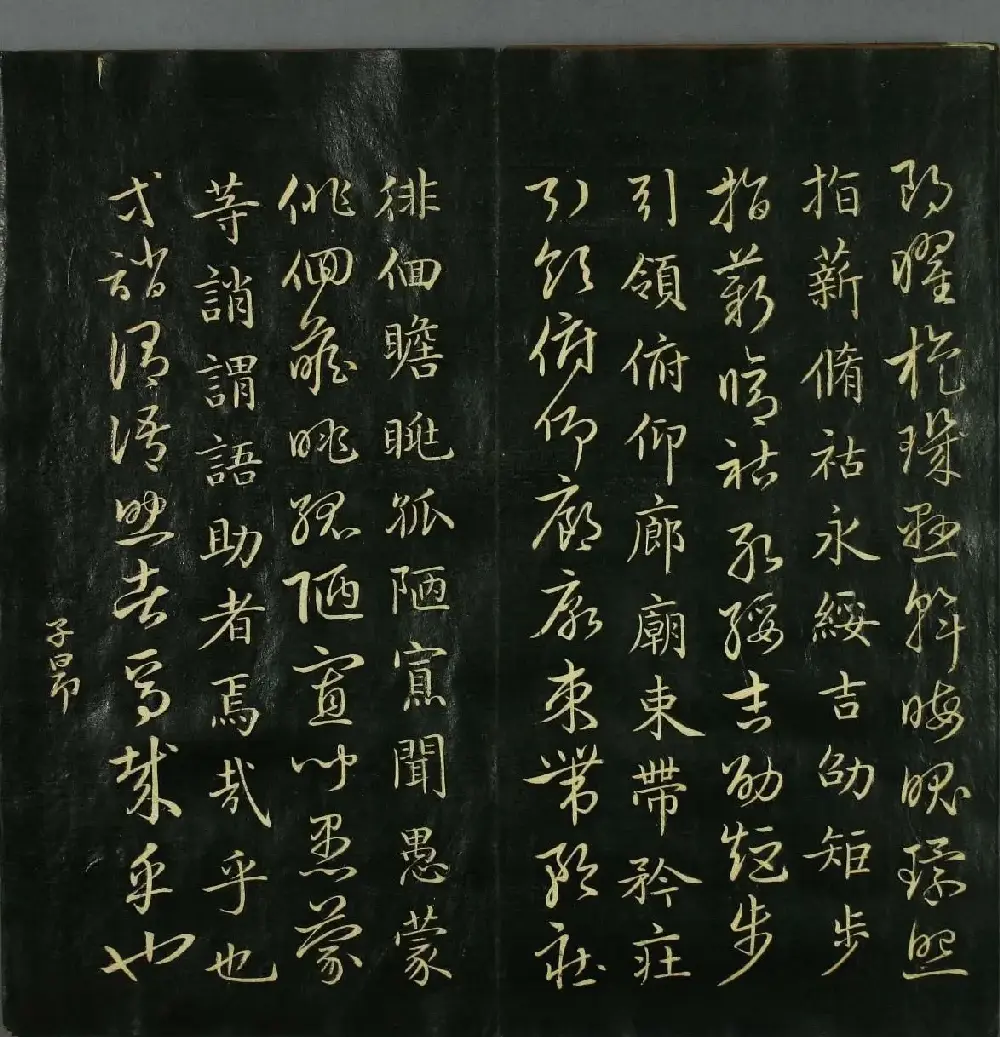 朗曜旋璣懸斡晦魄環照
指薪脩祜永綏吉劭矩步
指薪脩祜永綏吉劭矩步
引領俯仰廊廟束帶矜庄
引領俯仰廊廟束帶矜莊
徘徊瞻眺孤陋寡聞愚蒙
徘徊瞻眺孤陋寡聞愚蒙
等誚謂語助者焉哉乎也
等誚謂語助者焉哉乎也
子昂